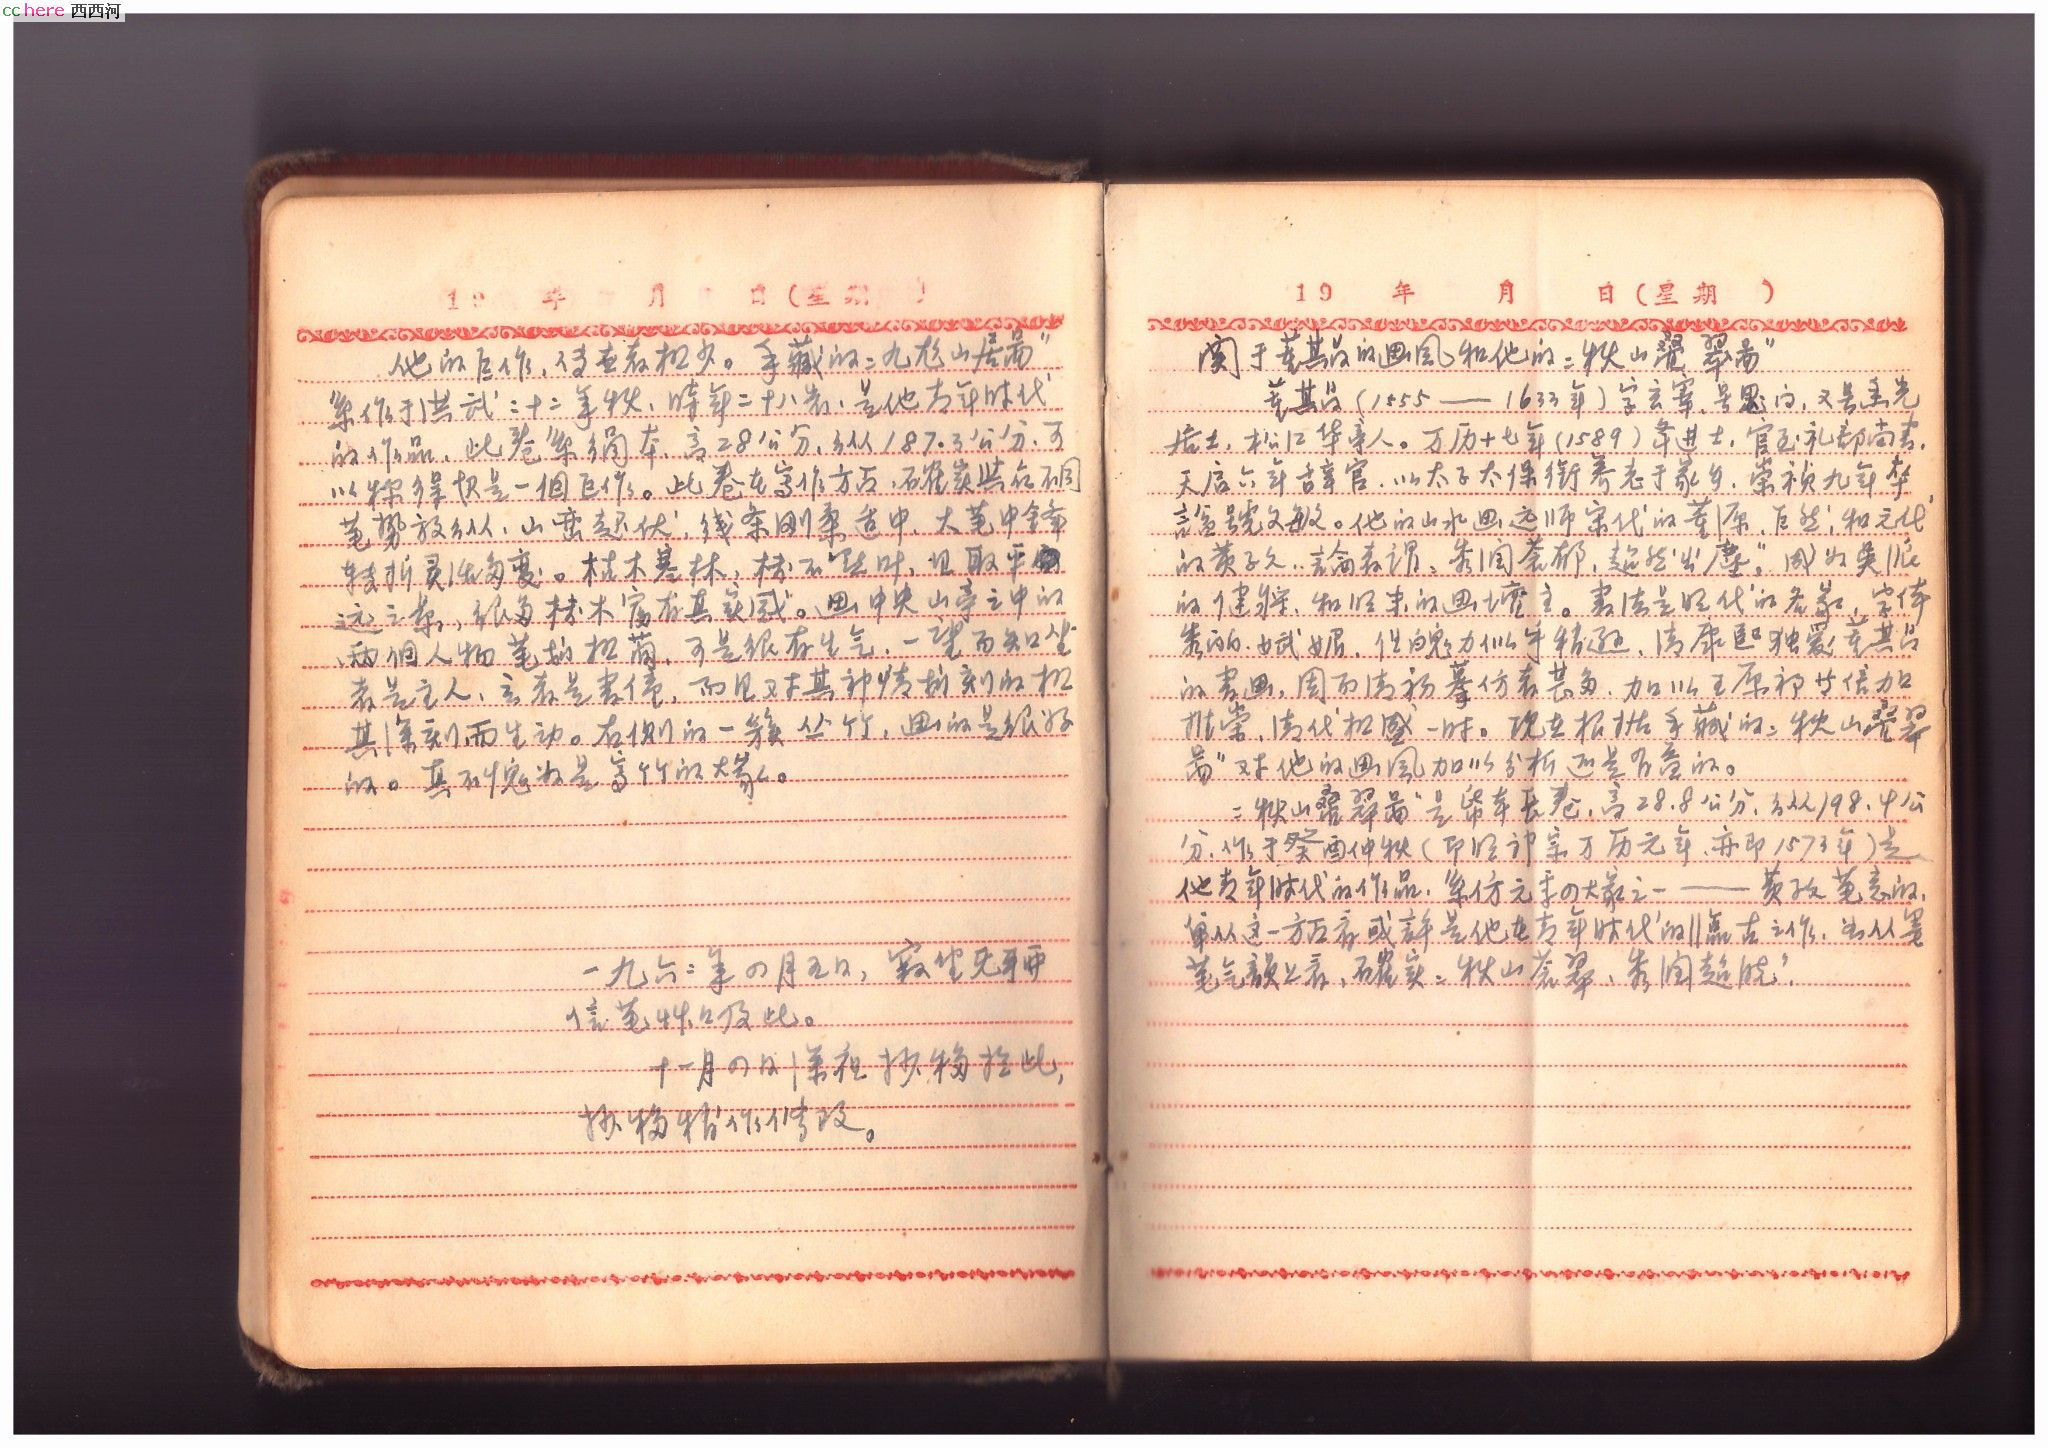 cchere 西西河
19 年 月 日(星期 )
他的巨作,传世者极少。手藏的"九龙山居图"
系作于洪武二十二年秋,时年二十八岁,是他青年时代
的作品,此卷系绢本,高28公分,纵187.3公分,可
以称得切是一個巨作。此卷在写作方面,确实与众不同
笔势放纵,山峦起伏,线条刚柔适中,大笔中锋
转折灵活多变。枯木寒林,树不点叶,且取平
远之景,很多树木富有真实感。画中央山亭之中的
两個人物笔划极简,可是很有生气,一望而知坐
者是主人,立者是书僮,而且对其神情描刻的极
其深刻而生动。右侧的一簇丛竹,画的是很好
的。真不愧为是写竹的大家。
一九六二年四月五日,寂坐无聊
信笔涂及此。
十一月四日深夜抄稿於此,
抄稿稍作修改。
19 年 月 日(星期 )
関于董其昌的画风和他的"秋山叠翠图"
董其昌(1555——1633年)字玄宰,号思白,又号香光
居士,松江华亭人。万历十七年(1589)年进士,官至礼部尚书,
天启六年辞官,以太子太保衔养老于家乡,崇祯九年卒
謚號文敏。他的山水画远师宋代的董源、巨然,和元代
的黄子久,論者谓"秀润苍郁,超然出塵",成为吴派
的健将,和明末的画壇主。書法是明代的名家,字体
秀丽,妩媚,但魄力似乎稍逊,清康熙独爱董其昌
的書画,因而清初摹仿者甚多,加以王原祁等倍加
推崇,清代极盛一时。现在根据手藏的"秋山叠翠
图"对他的画風加以分析还是有益的。
"秋山叠翠图"是纸本長卷,高28.8公分,纵198.4公
分,作于癸酉仲秋(即明神宗万历元年,亦即1573年)是
他青年时代的作品,系仿元季四大家之一——黄子久笔意的,
单从这一方面看或許是他在青年时代的临古之作,当从墨
笔气韻上看,确实"秋山苍翠,秀润超脱"。